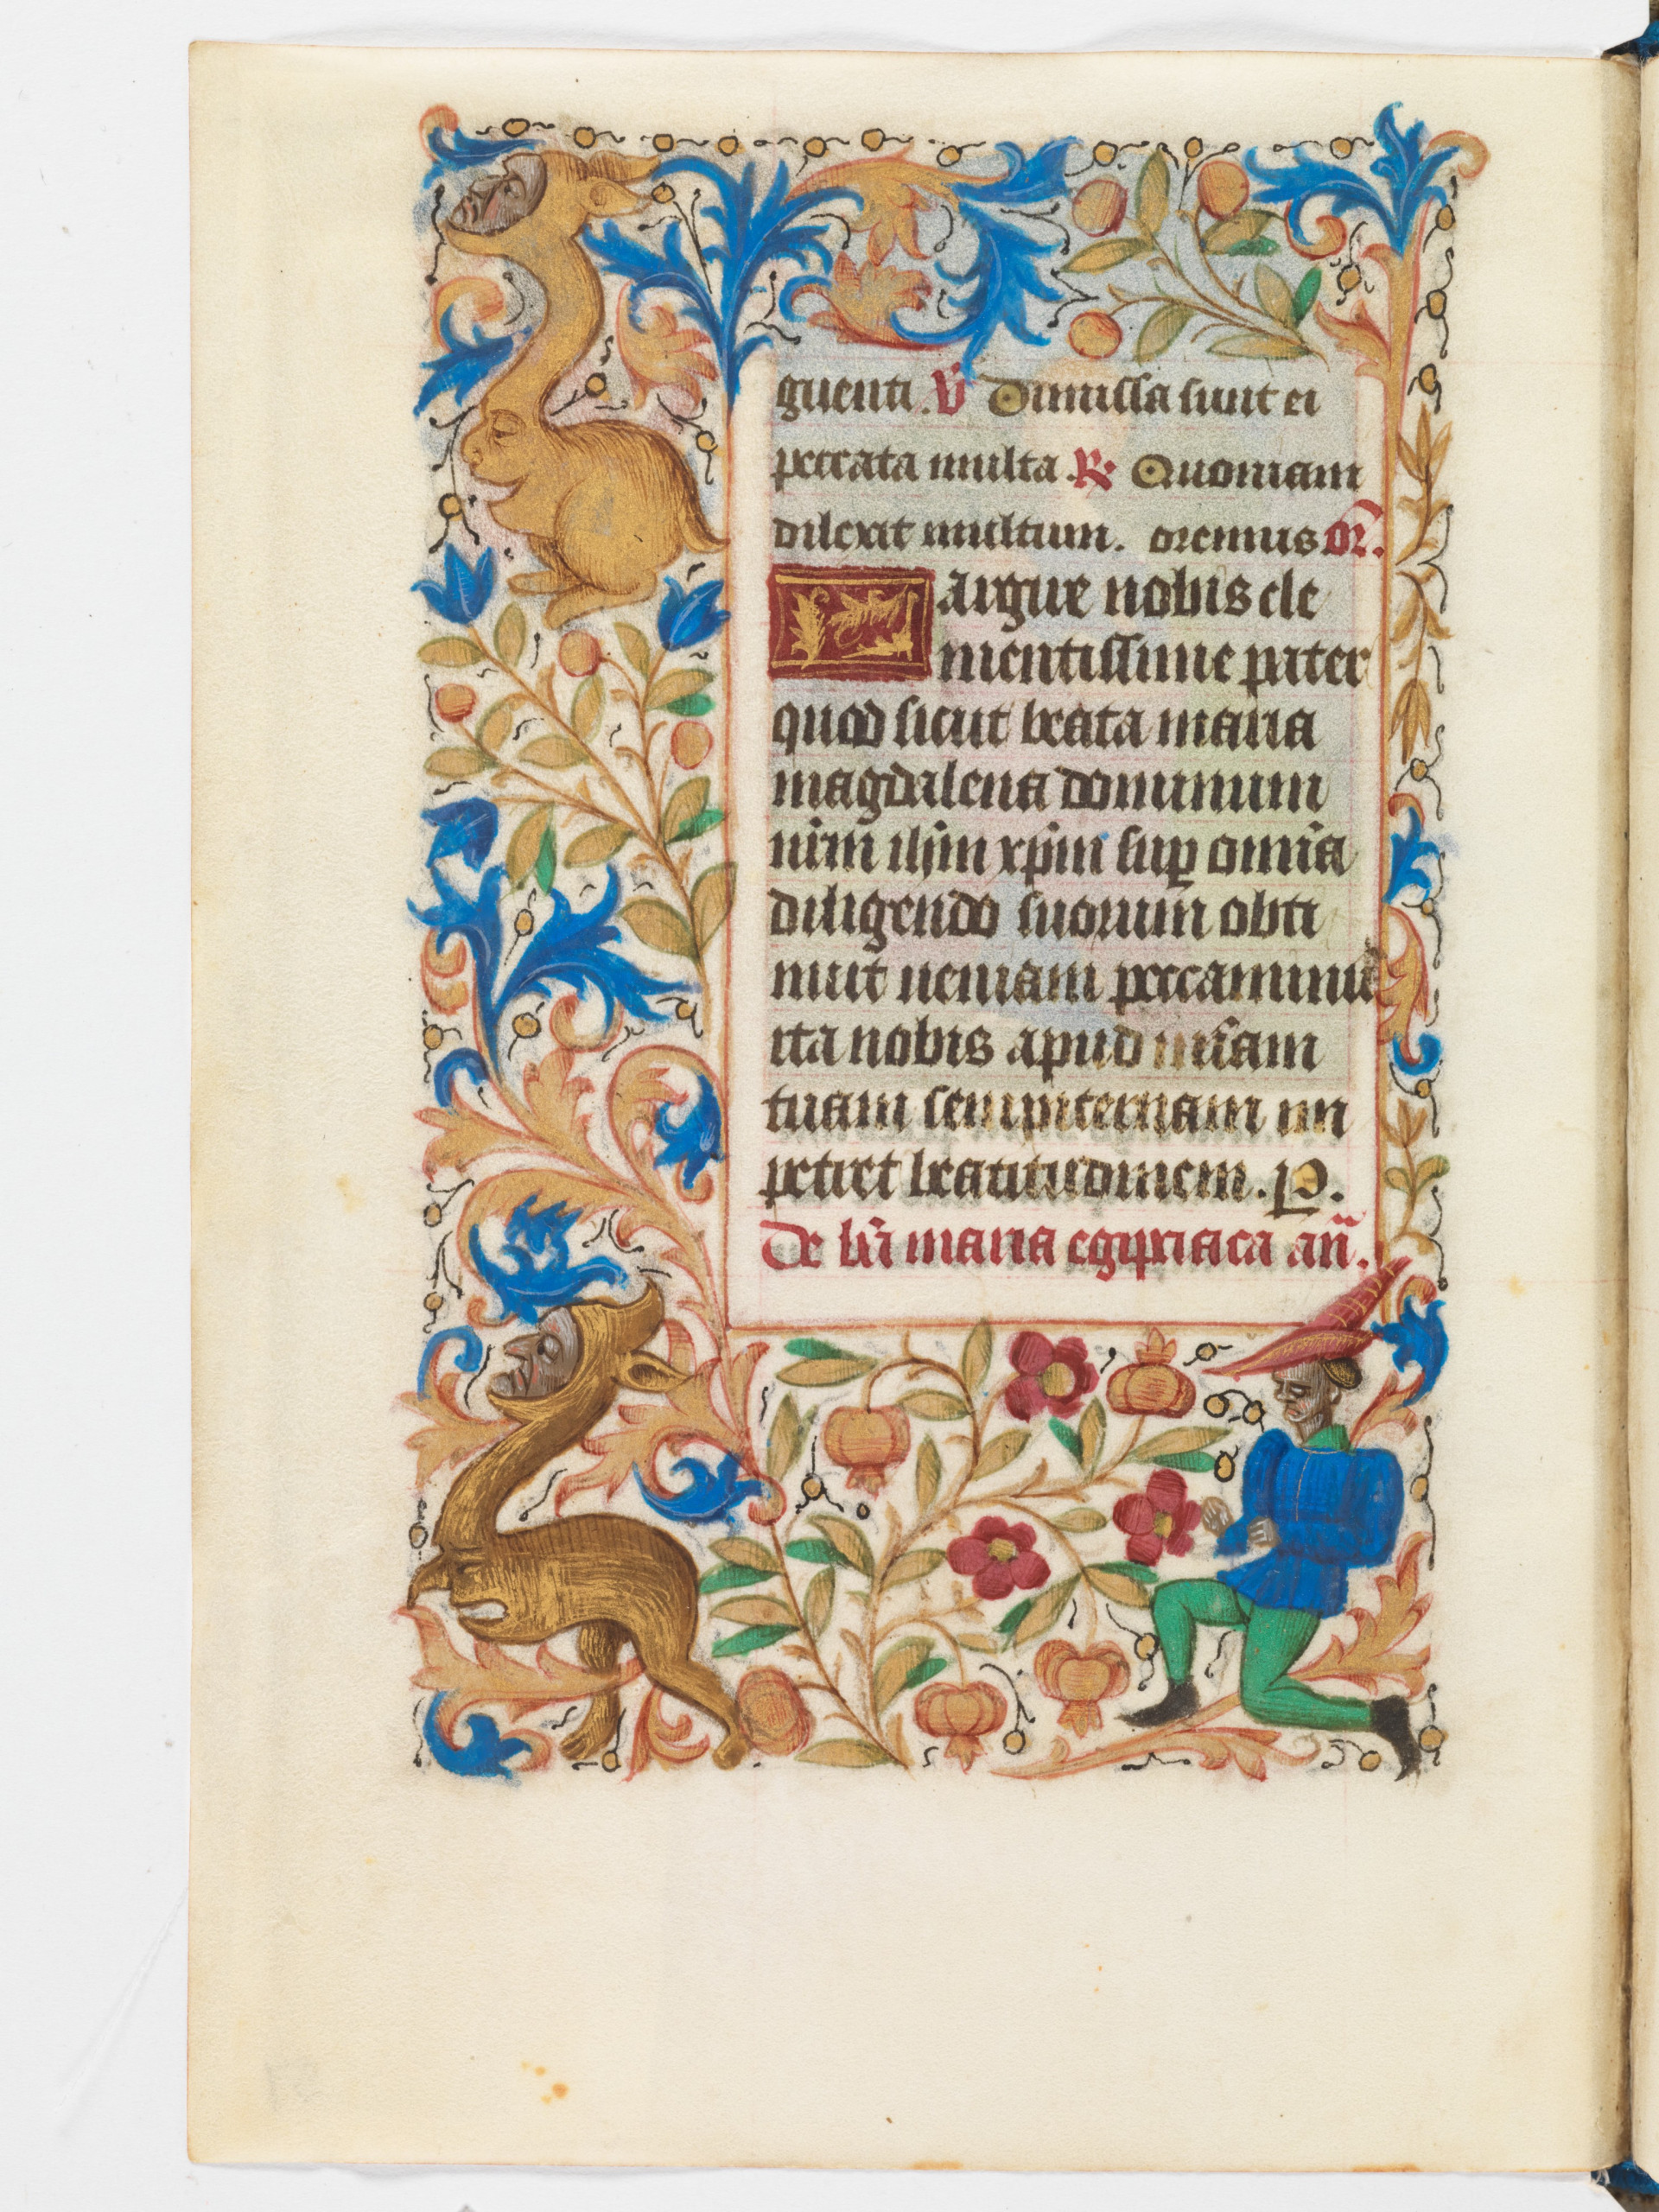 guenti. V̄ Dimissa sunt ei
peccata multa. R̷ Quoniam
dilexit multum. oremus or̄.
Largire nobis cle
mentissime pater
quod sicut beata maria
magdalena dominum
nr̄m ihm̄ xp̄m suꝑ omīa
diligendo suorum obti
nuit ueniam peccaminū
ita nobis apud mīam
tuam sempiternam im
petret beatitudinem. P.
De bt̄a maria egiptiaca an̄.